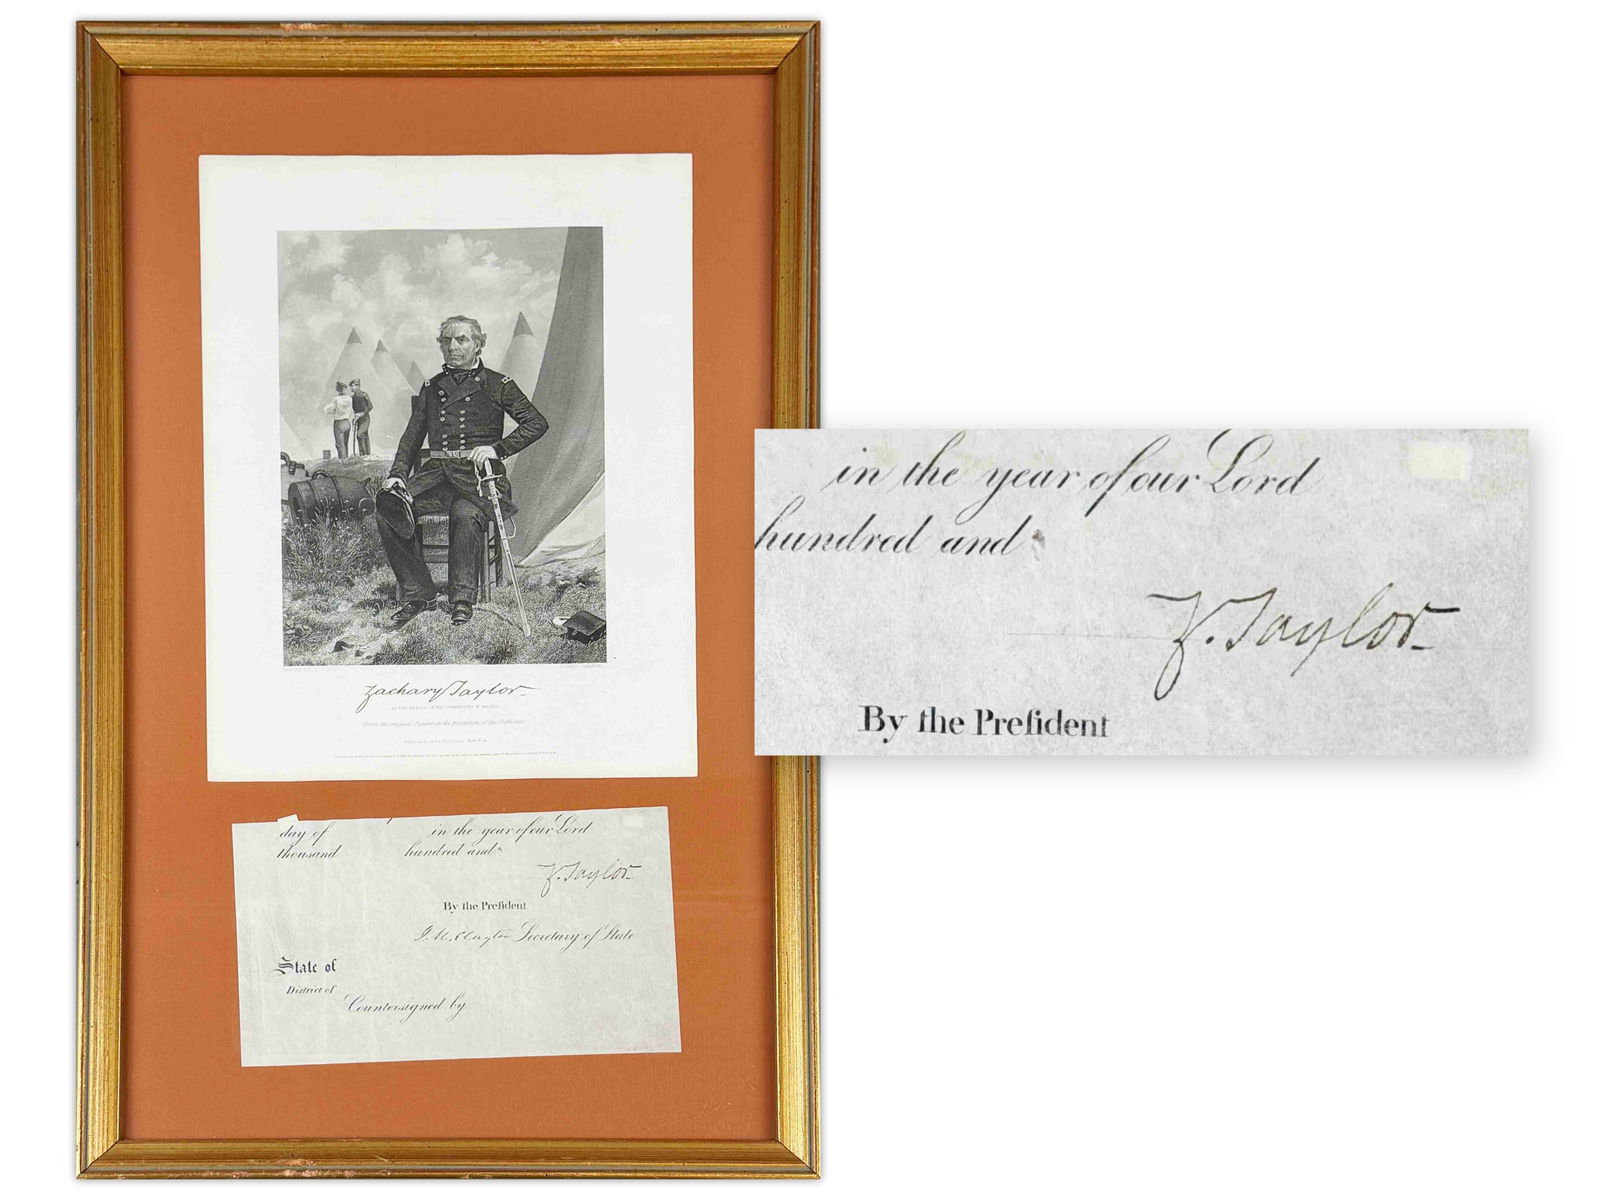 Zachary Taylor
From the original Picture in the possession of the Publishers
day of in the year of our Lord
thousand hundred and
Z. Taylor
By the Preſident
J. M. Clayton Secretary of State
State of
District of
Countersigned by
in the year of our Lord
hundred and
Z. Taylor
By the Preſident